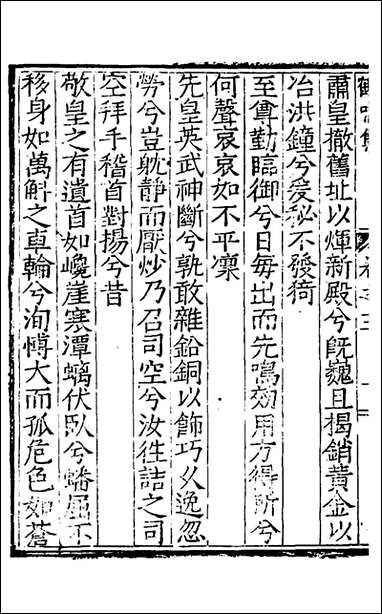 肅皇撤舊址以煇新殿兮旣巍且揭銷黄金以
冶洪鐘兮爰秘不發猗
至尊勤臨御兮日每出而先鳴効用方得所兮
何聲哀哀如不平凛
先皇英武神斷兮孰敢雜鉛銅以飾巧乆逸忽
勞兮豈躭静而厭炒乃召司空兮汝徃詰之司
空拜手稽首對揚兮昔
敬皇之有遺首如巉崖寒潭螭伏臥兮蟠屈不
移身如萬斛之車輪兮洵博大而孤危色如蒼